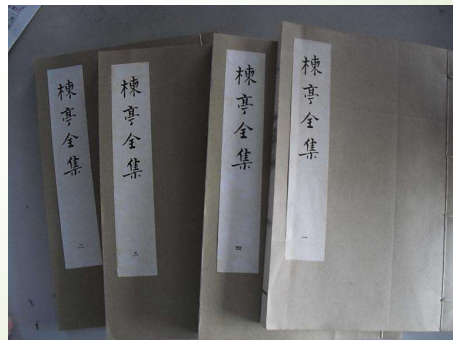 楝亭全集 二
楝亭全集 三
楝亭全集 四
楝亭全集 一